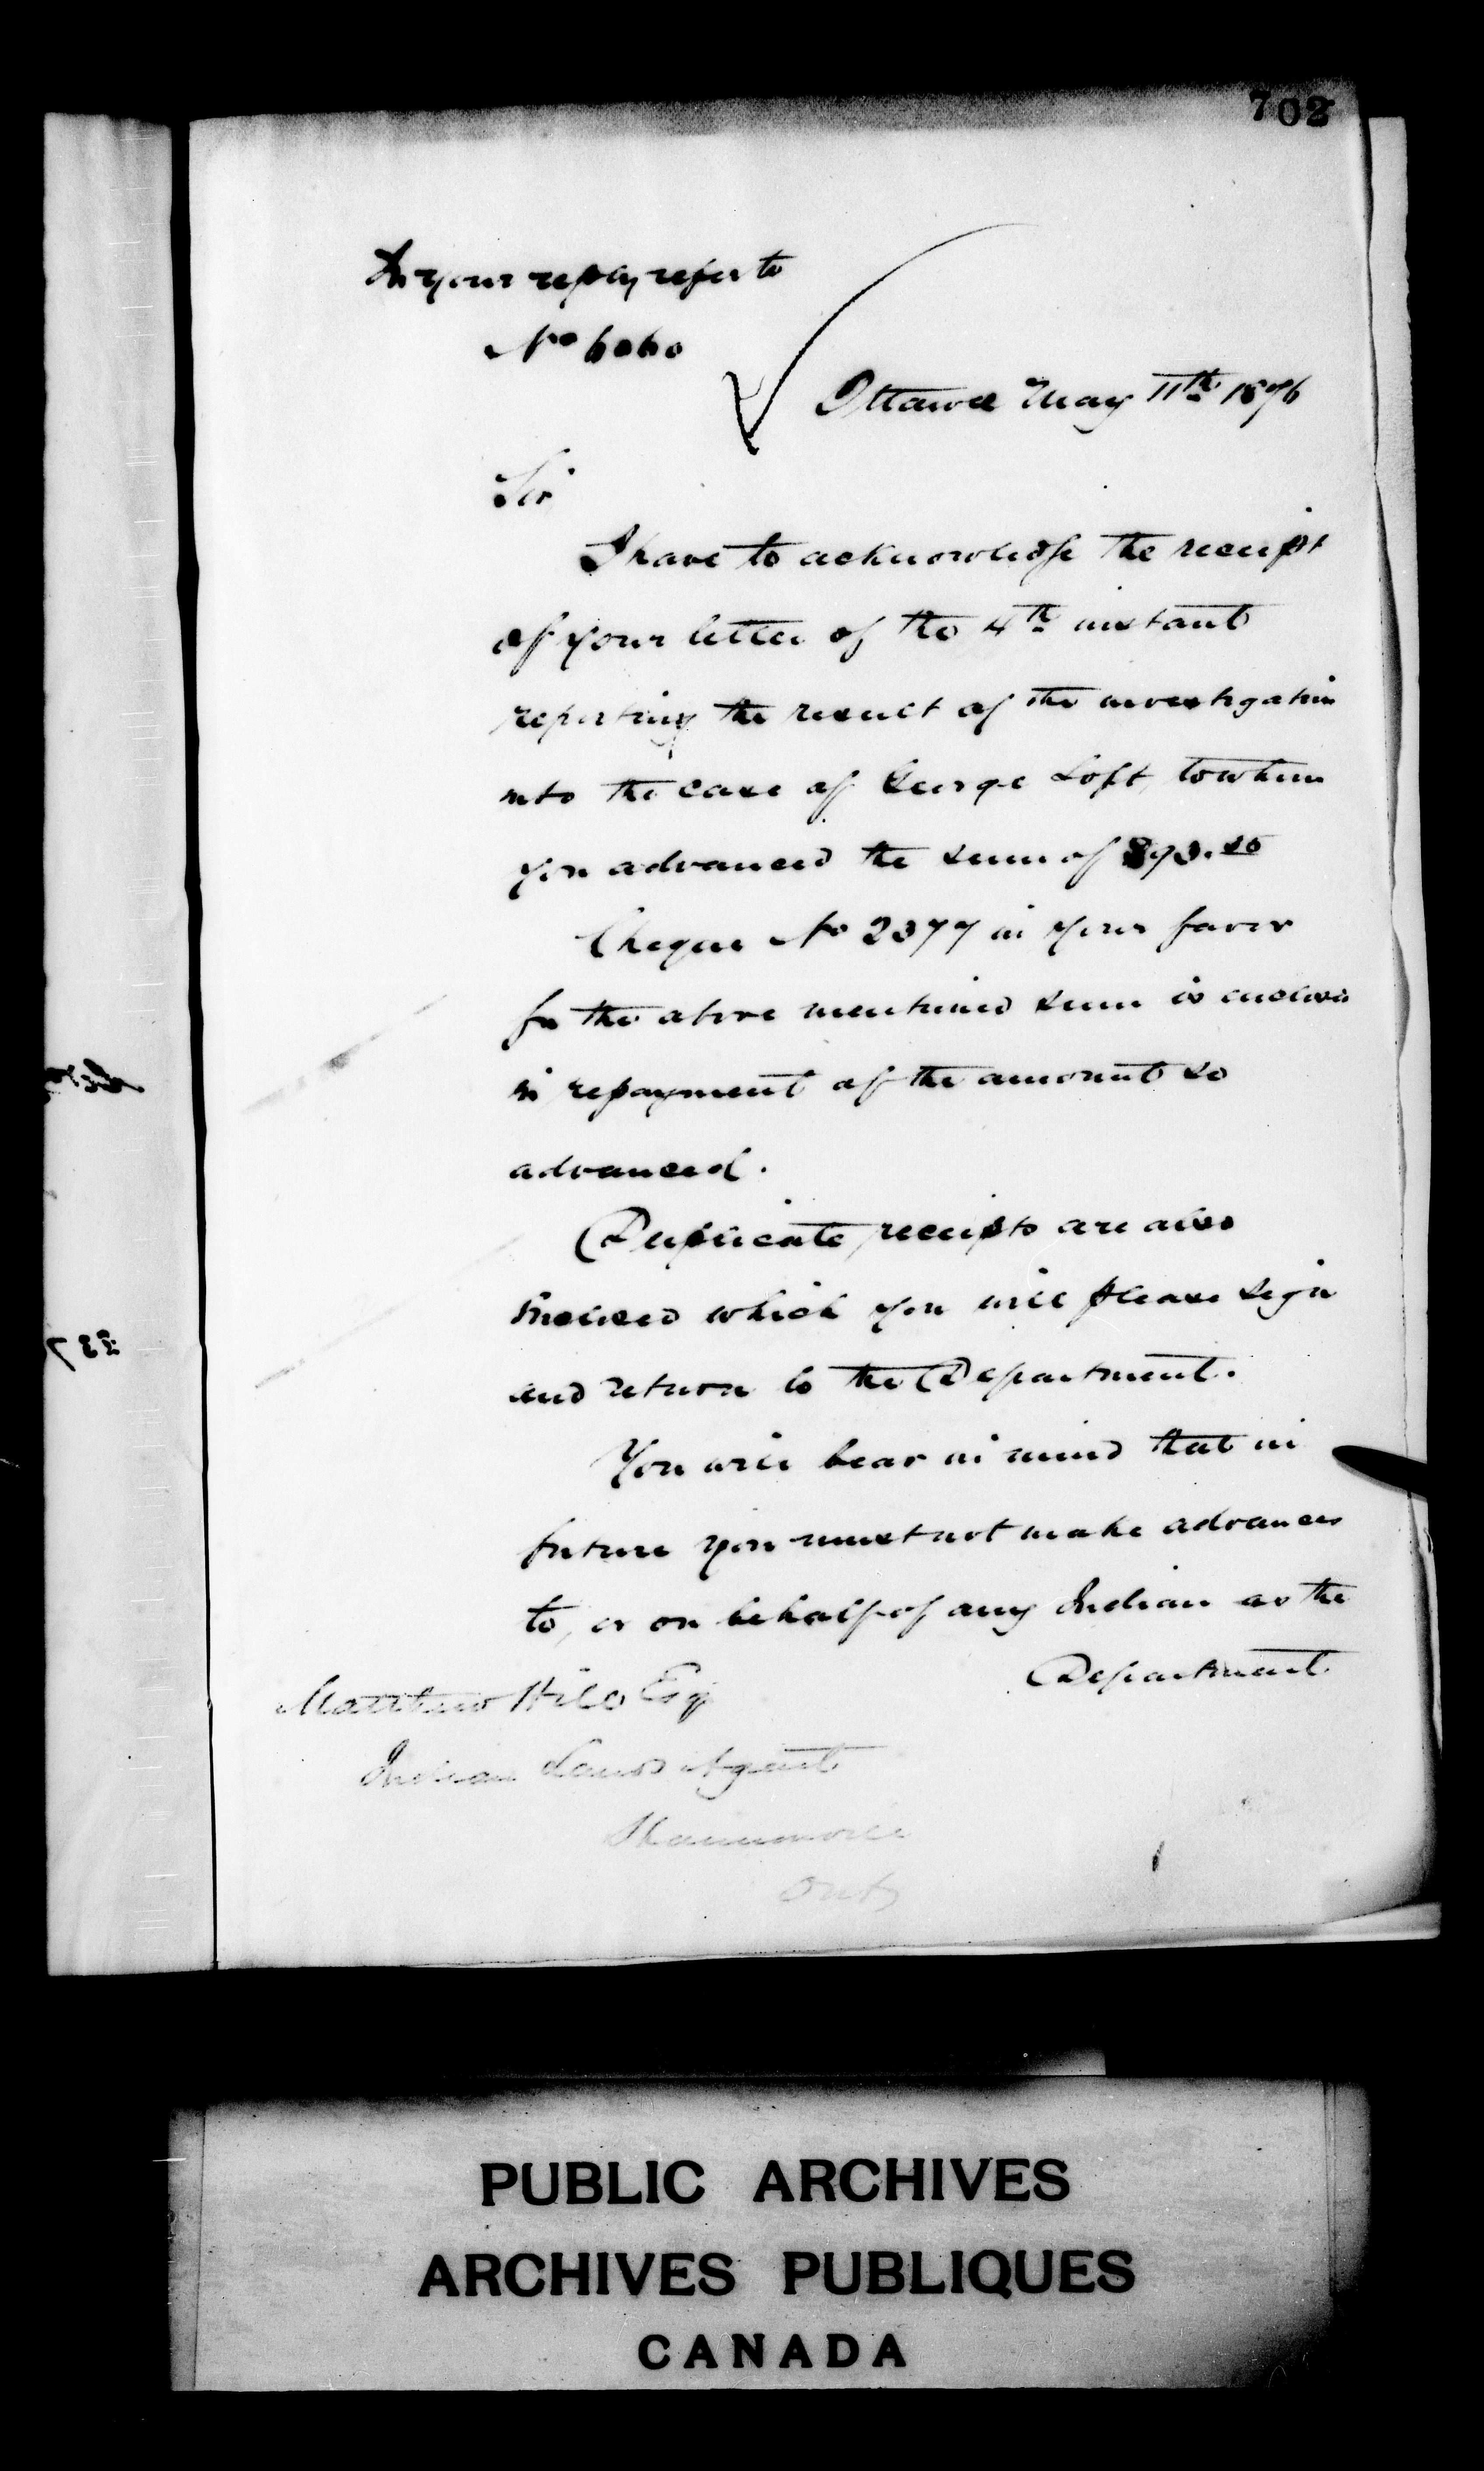 702
In your reply refer to
No 6060
Ottawa May 11th 1876
Sir
I have to acknowledge the receipt
of your letter of the 4th instant
reporting the result of the investigation
into the case of George Loft, to whom
you advanced the sum of
Cheque No 2377 in your favor
for the above mentioned sum is enclosed
in repayment of the amount so
advanced.
Duplicate receipts are also
Enclosed which you will please sign
and return to the Department.
You will bear in mind that in
future you must not make advances
to, or on behalf of any Indian as the
Department
Matthew Hill Esq
Indian Land Agent
Shannonville
Ont
PUBLIC ARCHIVES
ARCHIVES PUBLIQUES
CANADA